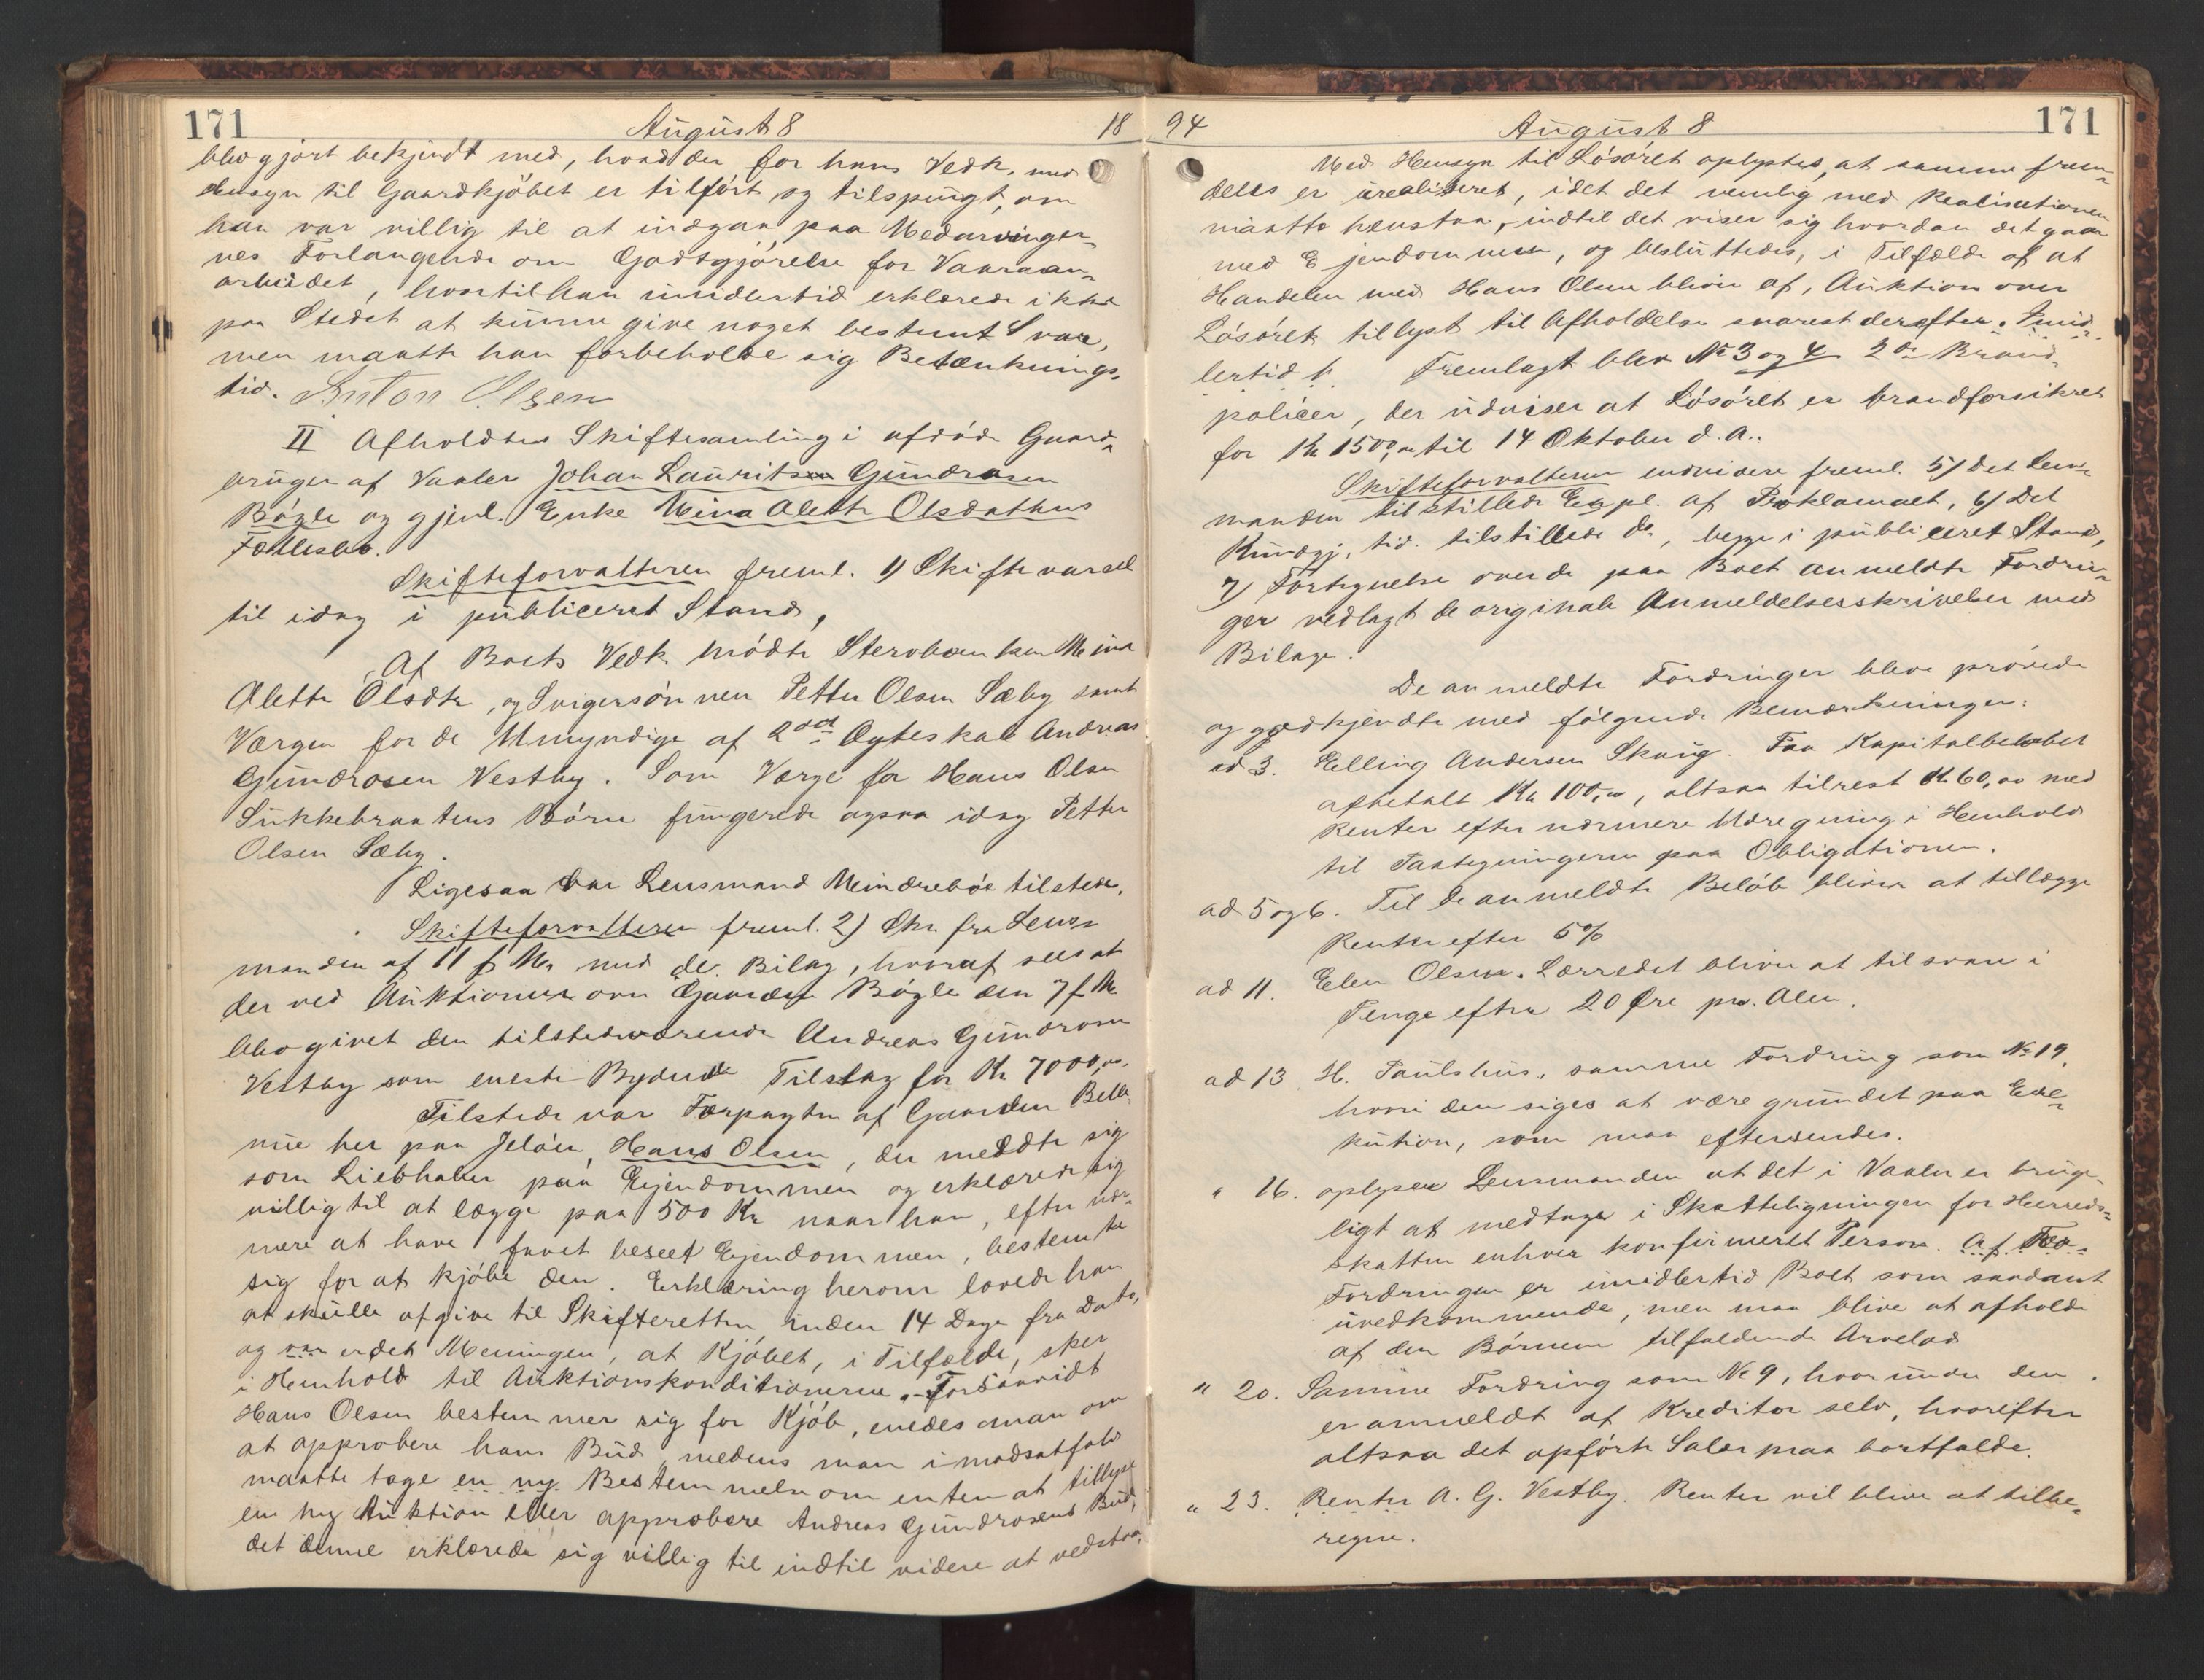 171 August 8 18
blev gjort bekjendt med, hvad der for hans Vedk. med
Hensyn til Gaardkjöbet er tilfört og tilspurgt, om
han var villig til at indgaa paa Medarvinger-
nes Forlangende om Godtgjörelse for Vaaraan-
arbeidet, hvortil han imidlertid erklærede ikke
paa Stedet at kunne give noget bestemt Svar,
men maatte han forbeholde sig Betænknings-
tid. Anton Olsen
II Afholdtes Skiftesamling i afdöde Gaard-
bruger af Vaaler Johan Lauritsen Gundrosen
Bögle og gjenl. Enke Mina Alette Olsdatters
Fællesbo.
Skifteforvalteren freml. 1) Skiftevarsel
til idag i publiceret Stand,
Af Boets Vedk. mödte Stervboenken Mina
Alette Olsdtr, og Svigersönnen Petter Olsen Sæby samt
Værgen for de Umyndige af 2det Ægteskab Andreas
Gundrosen Vestby. Som Værge for Hans Olsen
Sukkebraatens Börn fungerede ogsaa idag Petter
Olsen Sæby.
Ligesaa var Lensmand Meindreböe tilstede.
Skifteforvalteren freml. 2) Skr. fra Lens-
manden af 11 f. M. med de. Bilag, hvoraf sees at
der ved Auktionen over Gaarden Bögle den 7 f. M.
blev givet den tilstedeværende Andreas Gundrosen
Vestby som eneste Bydende Tilslag for Kr 7000,00.
Tilstede var Forpagter af Gaarden Belle-
vue her paa Jelöen, Hans Olsen, der meldte sig
som Liebhaber paa Eiendommen og erklærede sig
villig til at lægge paa 500 Kr naar han, efter nær-
mere at have faaet beseet Eiendommen, bestemte
sig for at kjöbe den. Erklæring herom lovede han
at skulle afgive til Skifteretten inden 14 Dage fra Dato,
og var er det Meningen, at Kjöbet, i Tilfælde, sker
i Henhold til Auktionskonditionerne. Forsaavidt
Hans Olsen bestemmer sig for Kjöb, enedes man om
at approbere hans Bud, medens man i modsat fald
maatte tage en ny Bestemmelse om enten at tillyse
en ny Auktion eller approbere Andreas Gundrosens Bud,
det denne erklærede sig villig til indtil videre at vedstaa.
94 August 8 171
Med Hensyn til Lösöret oplystes, at samme frem-
deles er urealiseret, idet det nemlig med Realisationen
maatte henstaa, indtil det viser sig hvordan det gaar
med Ejendommen, og besluttedes, i Tilfælde af at
Handelen med Hans Olsen bliver af, Auktion over
Lösöret tillyst til Afholdelse snarest derefter. Imid-
lertid b. Fremlagt blev No 3 og 4 2de Brand-
policer, der udviser at Lösöret er brandforsikret
for Kr 1500,00 til 14 Oktober d. A..
Skifteforvalteren endvidere freml. 5) det Lens-
manden tilstillede Expl. af Proklamaet, 6) Det
Kundgj. tid. tilstillede do, begge i publiceret Stand,
7) Fortegnelse over de paa Boet anmeldte Fordrin-
ger vedlagt de originale Anmeldelsesskrivelser med
Bilage.
De anmeldte Fordringer bleve prövede
og godkjendte med fölgende Bemærkninger:
ad 3. Elling Andersen Skaug. Paa Kapitalbelöbet
afbetalt Kr 100,00, altsaa tilrest Kr 60,00 med
Renter efter nærmere Udregning i Henhold
til Paategningerne paa Obligationen.
ad 5 og 6. Til de anmeldte Belöb bliver at tillægge
Renter efter 5%
ad 11. Elen Olsen. Lærredet bliver at tilsvare i
Penge efter 20 Öre pr. Alen.
ad 13 H. Paulshus, samme Fordring som No 19,
hvori den siges at være grundet paa Exe-
kution, som maa eftersendes.
" 16. oplyser Lensmanden at det i Vaaler er bruge-
ligt at medtage i Skatteligningen for Herreds-
skatten enhver konfirmeret Person. Af For-
Fordringen er imidlertid Boet som saadant
uvedkommende, men maa blive at afholde
af den Börnene tilfaldende Arvelod
" 20. Samme Fordring som No 9, hvorunder den
er anmeldt af Kreditor selv, hvorefter
altsaa det opförte Salær maa bortfalde.
" 23. Renter A. G. Vestby. Renter vil blive at tilbe-
regne.